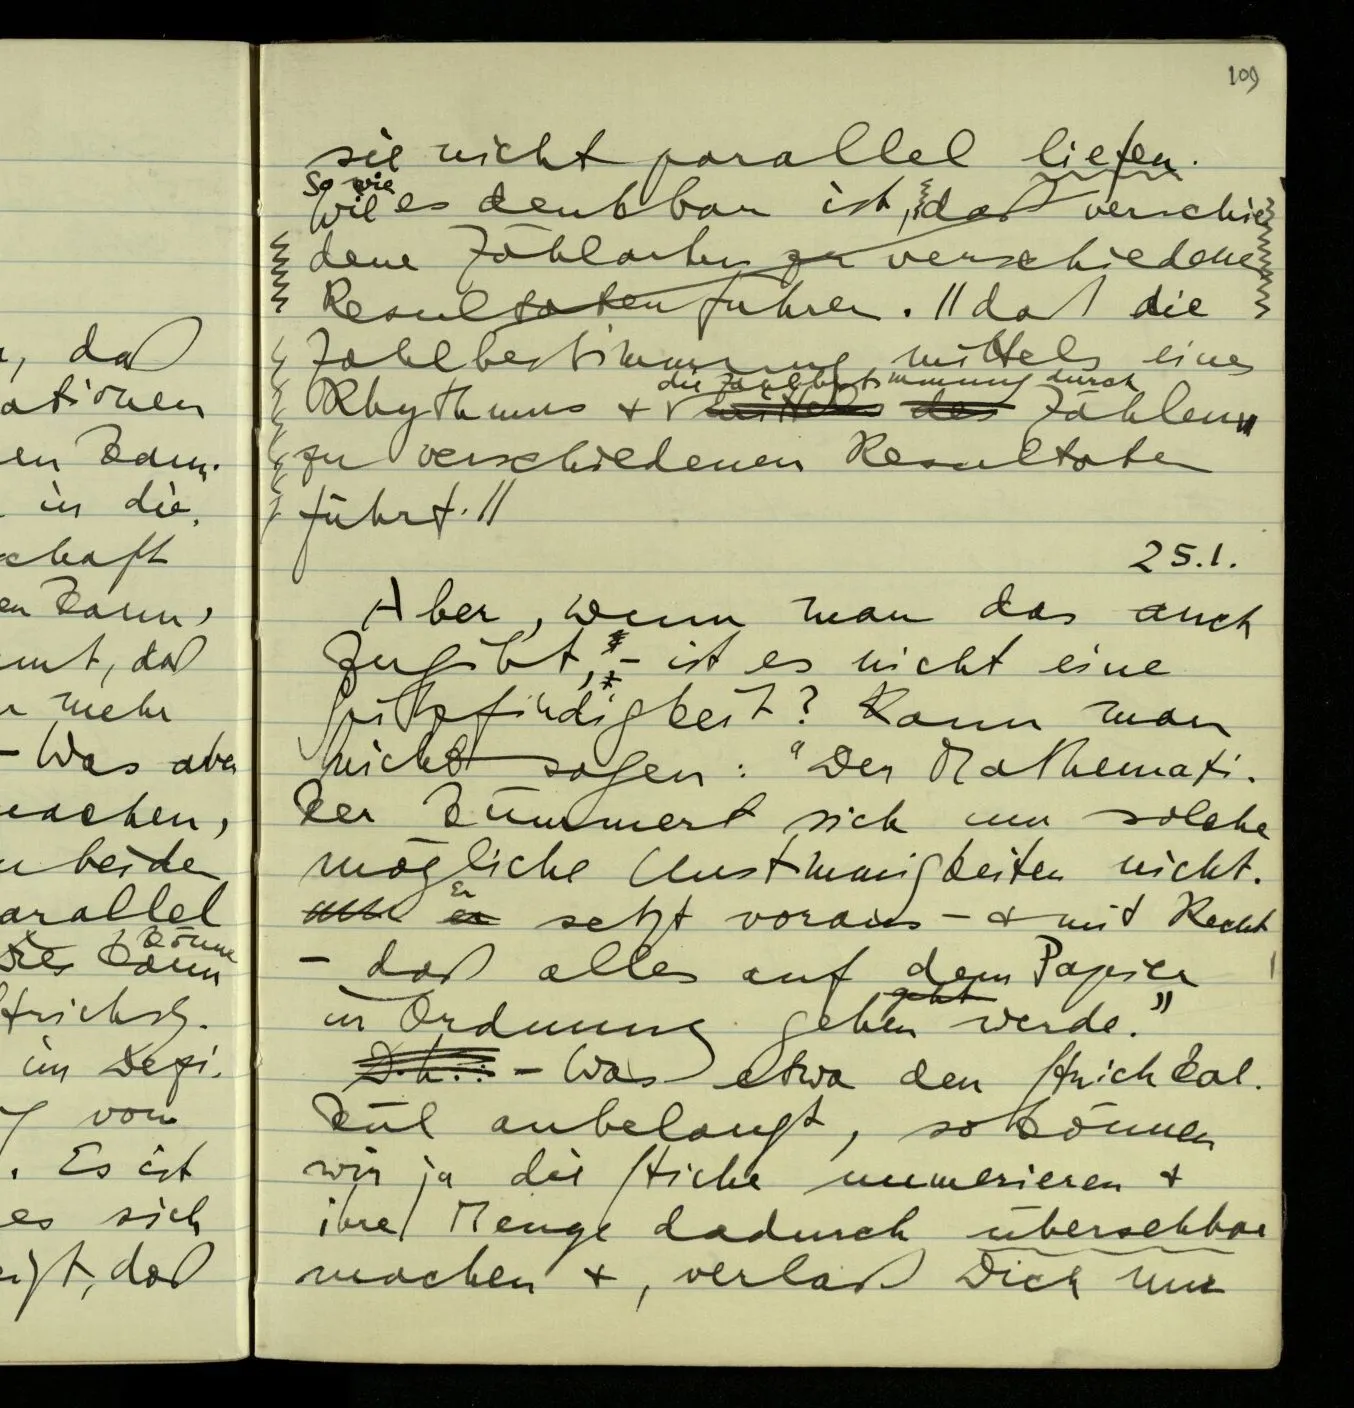 109
sie nicht parallel liefen.
So wie
Wie es denkbar ist, daß verschie
dene Zählarten zu verschiedene
Resultaten führen. // daß die
Zahlbestimmung mittels eines
die Zahlbestimmung durch
Rhythmus + mittels des Zählen"
zu verschiedenen Resultaten
führt. //
25.1.
Aber, wenn man das auch
zugibt, – ist es nicht eine
Spitzfindigkeit? Kann man
nicht sagen: "Der Mathemati-
ker kümmert sich um solche
mögliche Unstimmigkeiten nicht.
Er
er setzt voraus – + mit Recht
– daß alles auf dem Papier
geht
in Ordnung gehen werde."
D.h.: – Was etwa den Strichkal-
kül anbelangt, so können
wir ja die Striche numerieren +
ihre Menge dadurch übersehbar
machen +, verlaß Dich nur
, daß
ationen
en kann.
in die
schaft
en kann,
mt, daß
r mehr
– Was aber
machen,
n beiden
arallel
könne
kann
Strichsy.
im Defi-
von
. Es ist
es sich
igt, daß